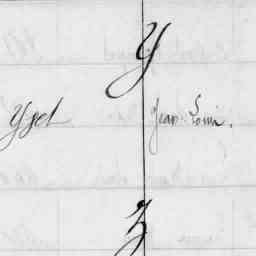 Y
Yzel Jean Louis.
Z